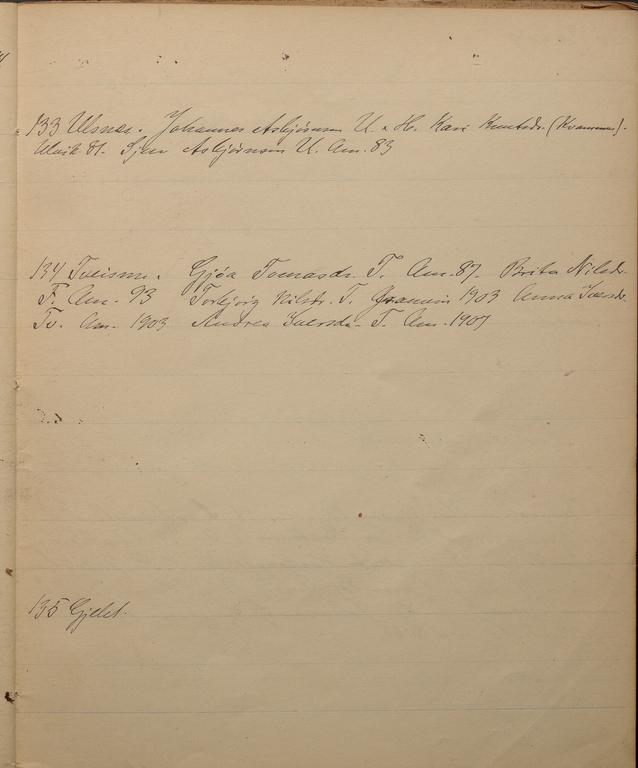 133 Ulsnes. Johannes Asbjørnsen U. & H. Kari Knutsdr. (Kvamsnes).
81. Sjur Asbjørnsen U. Am. 83
134 Tveisme. Gjøa Tomasdr. T. Am. 87. Brita Nilsdr.
T. Am. 93 Torbjørg Nilsdr. T. 1903 Anna Iversdr.
Tv. Am. 1903 Andrea Iversdr. T. Am. 1907
135 Gjelet.